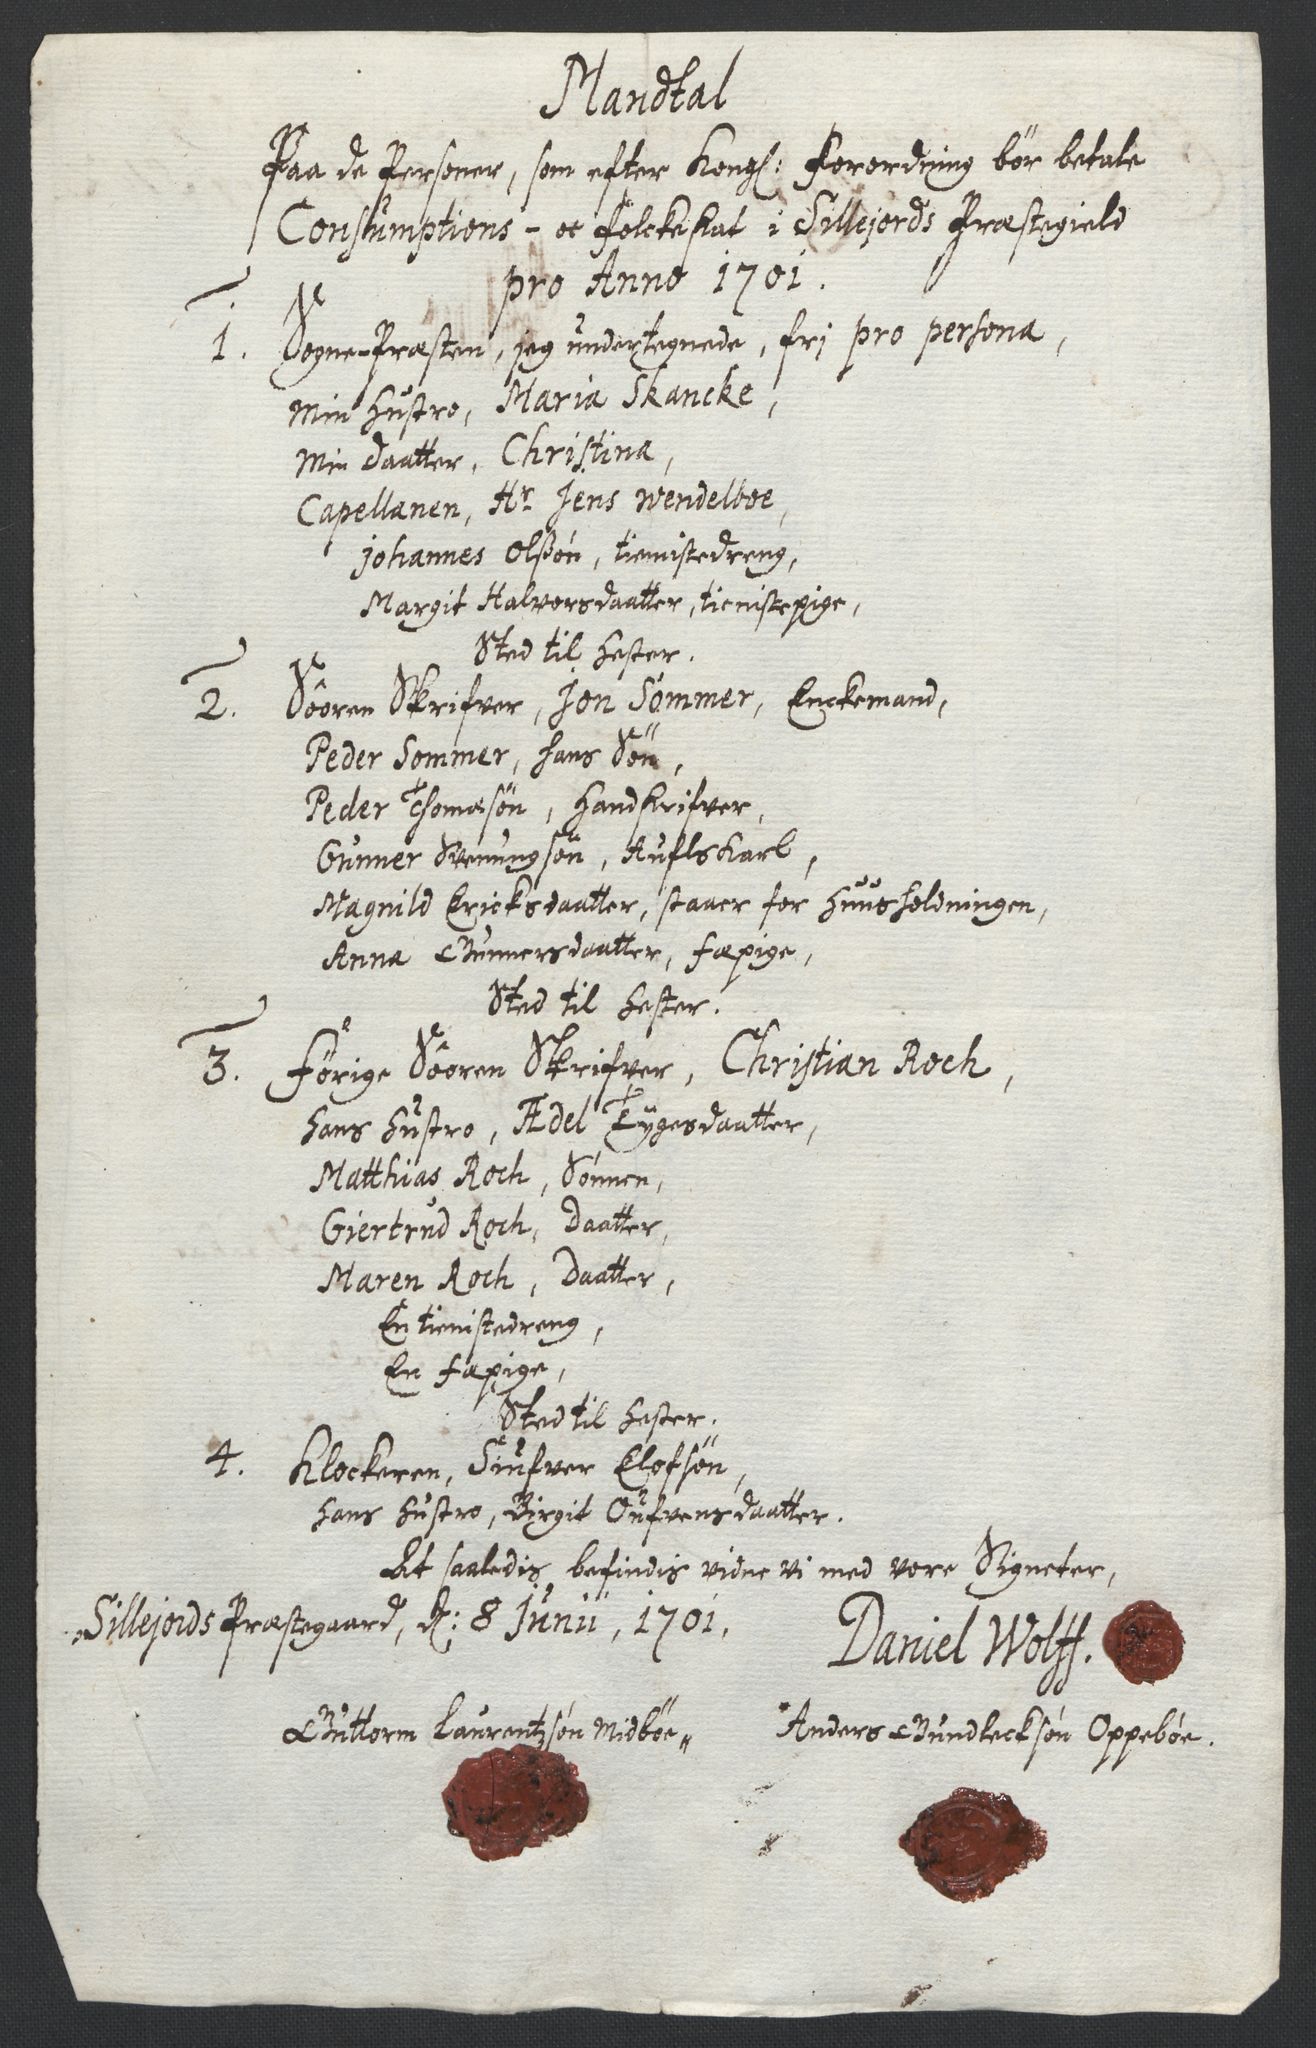 Mandtal
Paa de Personer, som efter Kongl: Forordning bör betale
Consumptions- oc Folckeskat i Sillejords Præstegield
pro Anno 1701.
1. Sogne-Præsten, jeg undertegnede, frj pro persona,
Min Hustro, Maria Skancke,
Min Daatter, Christina,
Capellanen, Hr Jens Wendelboe,
Johannes Olssøn, tienistedreng,
Margit Halvorsdaatter, tienistepige,
Sted til Hester.
2. Sôoren Skrifver, Jon Sommer, Enckemand,
Peder Sommer, hans Sön,
Peder Thomæsön, Handskrifver,
Gunner Svenungsön, Aufls Karl,
Magnild Ericksdaatter, staaer for Huusholdningen,
Anna Gunnersdaatter, Fæpige,
Sted til Hester.
3. Förige Sôoren Skrifver, Christian Roch,
Hans Hustro, Ædel Tygesdaatter,
Matthias Roch, Sönnen,
Giertrud Roch, Daatter,
Maren Roch, Daatter,
En tienistedreng,
En Fæpige,
Sted til Hester.
4. Klockeren, Siufver Elofsön,
Hans Hustro, Birgit Oufvensdaatter.
At saaledis befindis vidne vi med vore Signeter,
Sillejords Præstegaard, d: 8 Junii, 1701.
Daniel Wolff.
Guttorm Laurentzsön Midböe
Anders Gundlecksön Oppeböe.